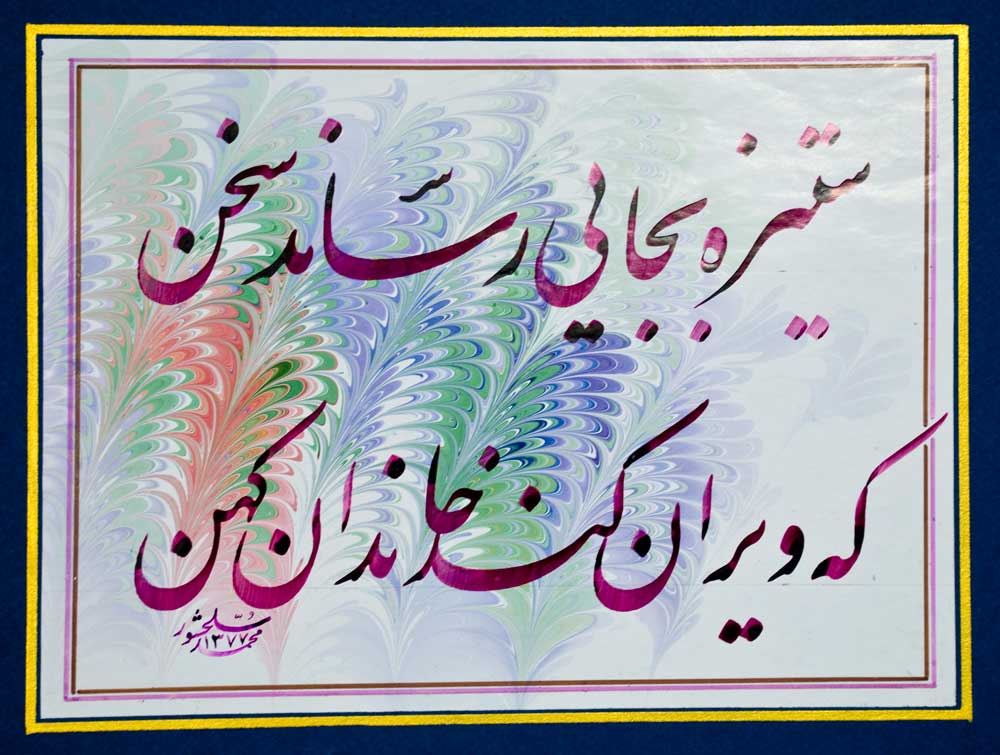 ستیزه بجائی رساند سخن
که ویران کند خاندان کهن
محمد سلحشور ۱۳۷۷